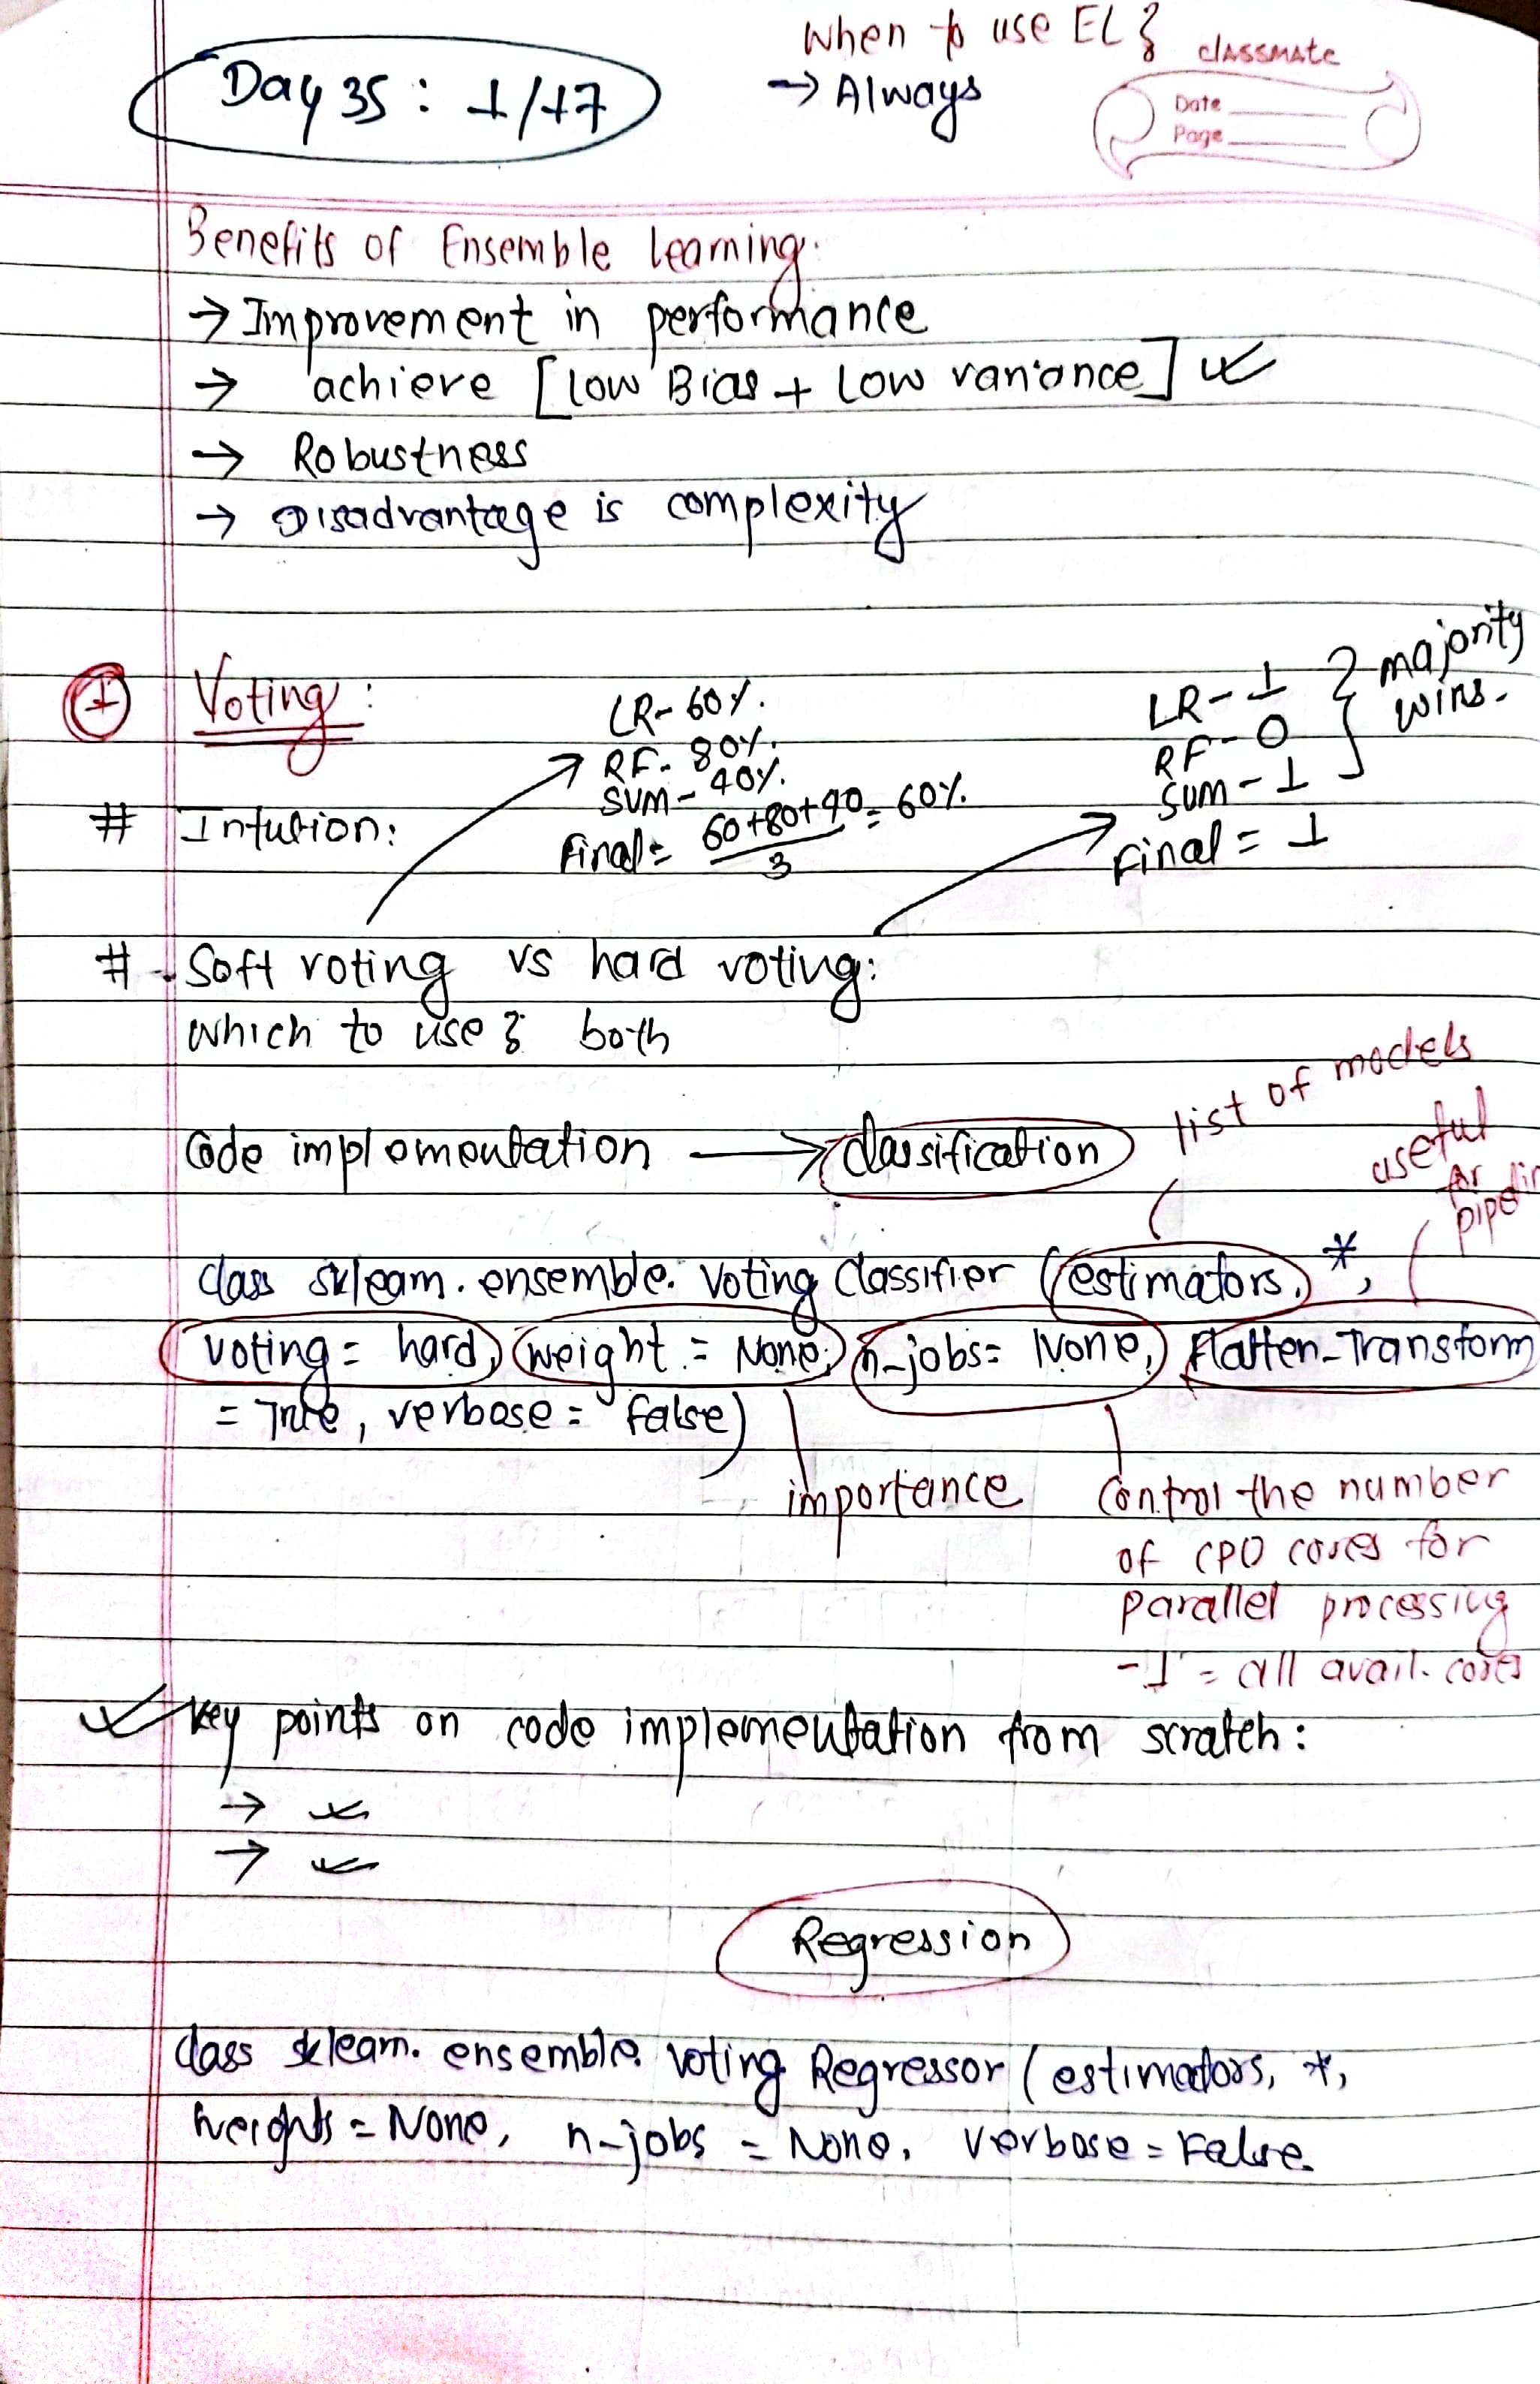 When to use EL ?
→ Always
classmate
Date
Page
Day 35 : 1/17
Benefits of Ensemble Learning:
→ Improvement in performance
→ achieve [low Bias + Low variance]
→ Robustness
→ Disadvantage is complexity
1 Voting :
LR - 60%.
RF - 80%.
SVM - 40%.
Final = 60+80+40/3 = 60%.
LR - 1
RF - 0
SVM - 1
Final = 1
majority
wins.
# Intution:
# Soft voting vs hard voting:
which to use ? both
Code implementation → classification
list of models
useful
for
class sklearn. ensemble. Voting Classifier (estimators, *,
voting = hard, weight = None, n-jobs = None, flatten-Transform
= True, verbose = false)
importance
Control the number
of CPU cores for
parallel processing
-1 = all avail. cores
key points on code implementation from scratch :
→
→
Regression
class sklearn. ensemble. voting Regressor (estimators, *,
weights = None, n-jobs = None, verbose = False.